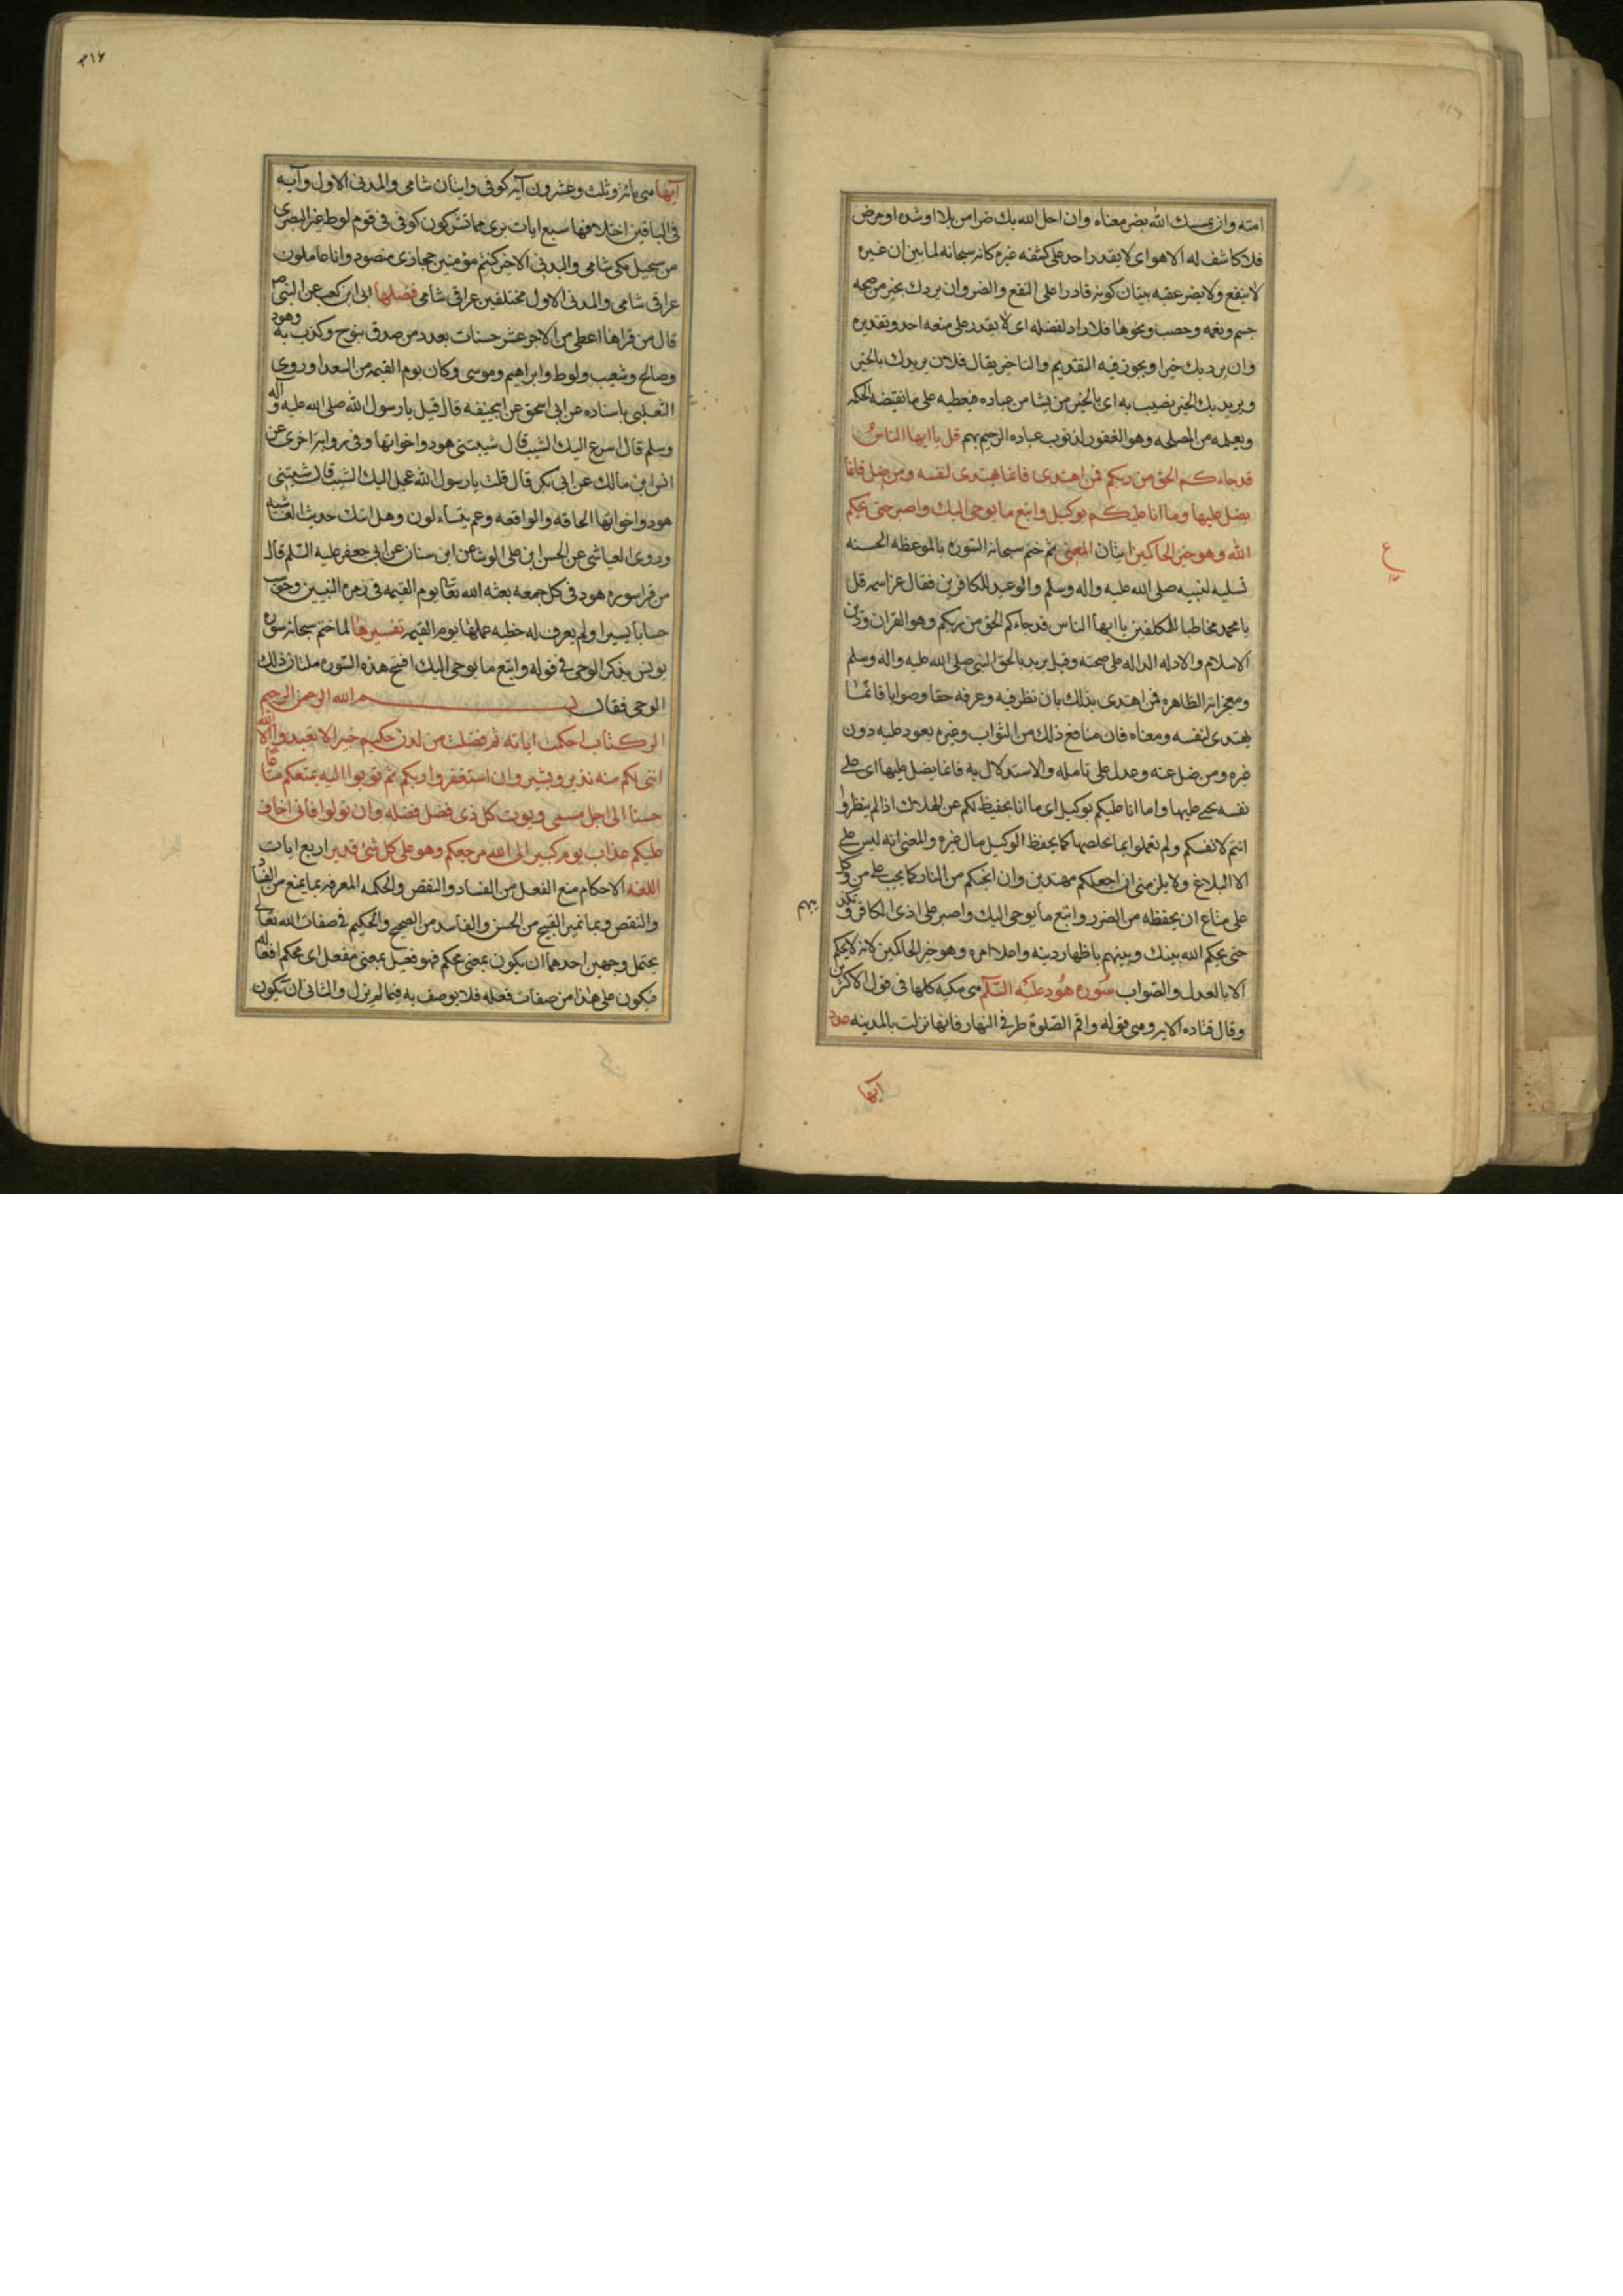 امته وان يمسسك الله بضر معناه وان احل الله بك ضرا من بلا او شده او مرض
فلا كاشف له الا هو اى لا يقدر احد على كشفه غيره كانه سبحانه لما بين ان غيره
لا ينفع ولا يضر عقبه ببيان كونه قادرا على النفع والضر وان يردك بخير من صحه
جسم ونعمه وخصب ونحوها فلا راد لفضله اى لا يقدر على منعه احد وتقديره
وان يرد بك خيرا ويجوز فيه التقديم والتاخير يقال فلان يريدك بالخير
ويريد بك الخير يصيب به اى بالخير من يشا من عباده فيعطيه على ما تقتضيه الحكمه
ويعلمه من المصلحه وهو الغفور لذنوب عباده الرحيم بهم قل يا ايها الناس
قد جاءكم الحق من ربكم فمن اهتدى فانما يهتدى لنفسه ومن ضل فانما
يضل عليها وما انا عليكم بوكيل واتبع ما يوحى اليك واصبر حتى يحكم
الله وهو خير الحاكمين ايتان المعنى ثم ختم سبحانه السوره بالموعظه الحسنه
تسليه لنبيه صلى الله عليه واله وسلم والوعيد للكافرين فقال عز اسمه قل
يا محمد مخاطبا للمكلفين يا ايها الناس قد جاءكم الحق من ربكم وهو القران ودين
الاسلام والادله الداله على صحته وقيل يريد بالحق النبى صلى الله عليه واله وسلم
ومعجزاته الظاهره فمن اهتدى بذلك بان نظر فيه وعرفه حقا وصوابا فانما
يهتدى لنفسه ومعناه فان منافع ذلك من الثواب وغيره يعود عليه دون
غيره ومن ضل عنه وعدل على تامله والاستدلال به فانما يضل عليها اى على
نفسه يجنى عليها وما انا عليكم بوكيل اى ما انا بحفيظ لكم عن الهلاك اذا لم ينظروا
انتم لانفسكم ولم تعملوا بما يخلصها كما يحفظ الوكيل مال غيره والمعنى انه ليس على
الا البلاغ ولا يلزمنى ان اجعلكم مهتدين وان انجيكم من النار كما يجب على من وكل
على متاع ان يحفظه من الضرر واتبع ما يوحى اليك واصبر على اذى الكافرين وتكذيبهم
حتى يحكم الله بينك وبينهم باظهار دينه واعلا امره وهو خير الحاكمين لانه لا يحكم
الا بالعدل والصواب سوره هود عليه السلم هى مكيه كلها فى قول الاكثرين
وقال قتاده الا ايه وهى قوله واقم الصلوة طرفى النهار فانها نزلت بالمدينه عدد
ايها
ع
ايها هى مائه وثلث وعشرون آيه كوفى وايتان شامى والمدنى الاول وآيه
فى الباقين اختلافها سبع ايات برى مما تشركون كوفى فى قوم لوط غير البصرى
من سجيل مكى شامى والمدنى الاخر كنتم مؤمنين حجازى منضود وانا عاملون
عراقى شامى والمدنى الاول مختلفين عراقى شامى فضلها ابى ابن كعب عن النبى ص
قال من قراها اعطى من الاجر عشر حسنات بعدد من صدق بنوح وكذب به وهود
وصالح وشعيب ولوط وابراهيم وموسى وكان يوم القيمه من السعدا وروى
الثعلبى باسناده عن ابى اسحق عن ابى جحيفه قال قيل يا رسول الله صلى الله عليه واله
وسلم قال اسرع اليك الشيب قال شيبتنى هود واخواتها وفى روايه اخرى عن
انس ابن مالك عن ابى بكر قال قلت يا رسول الله عجل اليك الشيب قال شيبتنى
هود واخواتها الحاقه والواقعه وعم يتساءلون وهل اتيك حديث الغاشيه
وروى العياشى عن الحسن ابن على الوشا عن ابن سنان عن ابى جعفر عليه السلم قال
من قرا سوره هود فى كل جمعه بعثه الله تعالى يوم القيمه فى زمره النبيين وحوسب
حسابا يسيرا ولم يعرف له خطيه عملها يوم القيمه تفسيرها لما ختم سبحانه سوره
يونس بذكر الوحى فى قوله واتبع ما يوحى اليك افتتح هذه السوره ببيان ذلك
الوحى فقال بسم الله الرحمن الرحيم
الر كتاب احكمت اياته ثم فصلت من لدن حكيم خبير الا تعبدوا الا الله
اننى لكم منه نذير وبشير وان استغفروا ربكم ثم توبوا اليه يمتعكم متاعا
حسنا الى اجل مسمى ويوت كل ذى فضل فضله وان تولوا فانى اخاف
عليكم عذاب يوم كبير الى الله مرجعكم وهو على كل شئ قدير اربع ايات
اللغه الاحكام منع الفعل من الفساد والنقص والحكمه المعرفه بما يمنع من الفساد
والنقص وبما تميز القبيح من الحسن والفاسد من الصحيح والحكيم فى صفات الله تعالى
يحتمل وجهين احدهما ان يكون بمعنى محكم فهو فعيل بمعنى مفعل اى محكم افعاله
فيكون على هذا من صفات فعله فلا يوصف به فيما لم يزل والثانى ان يكون
٣١۶